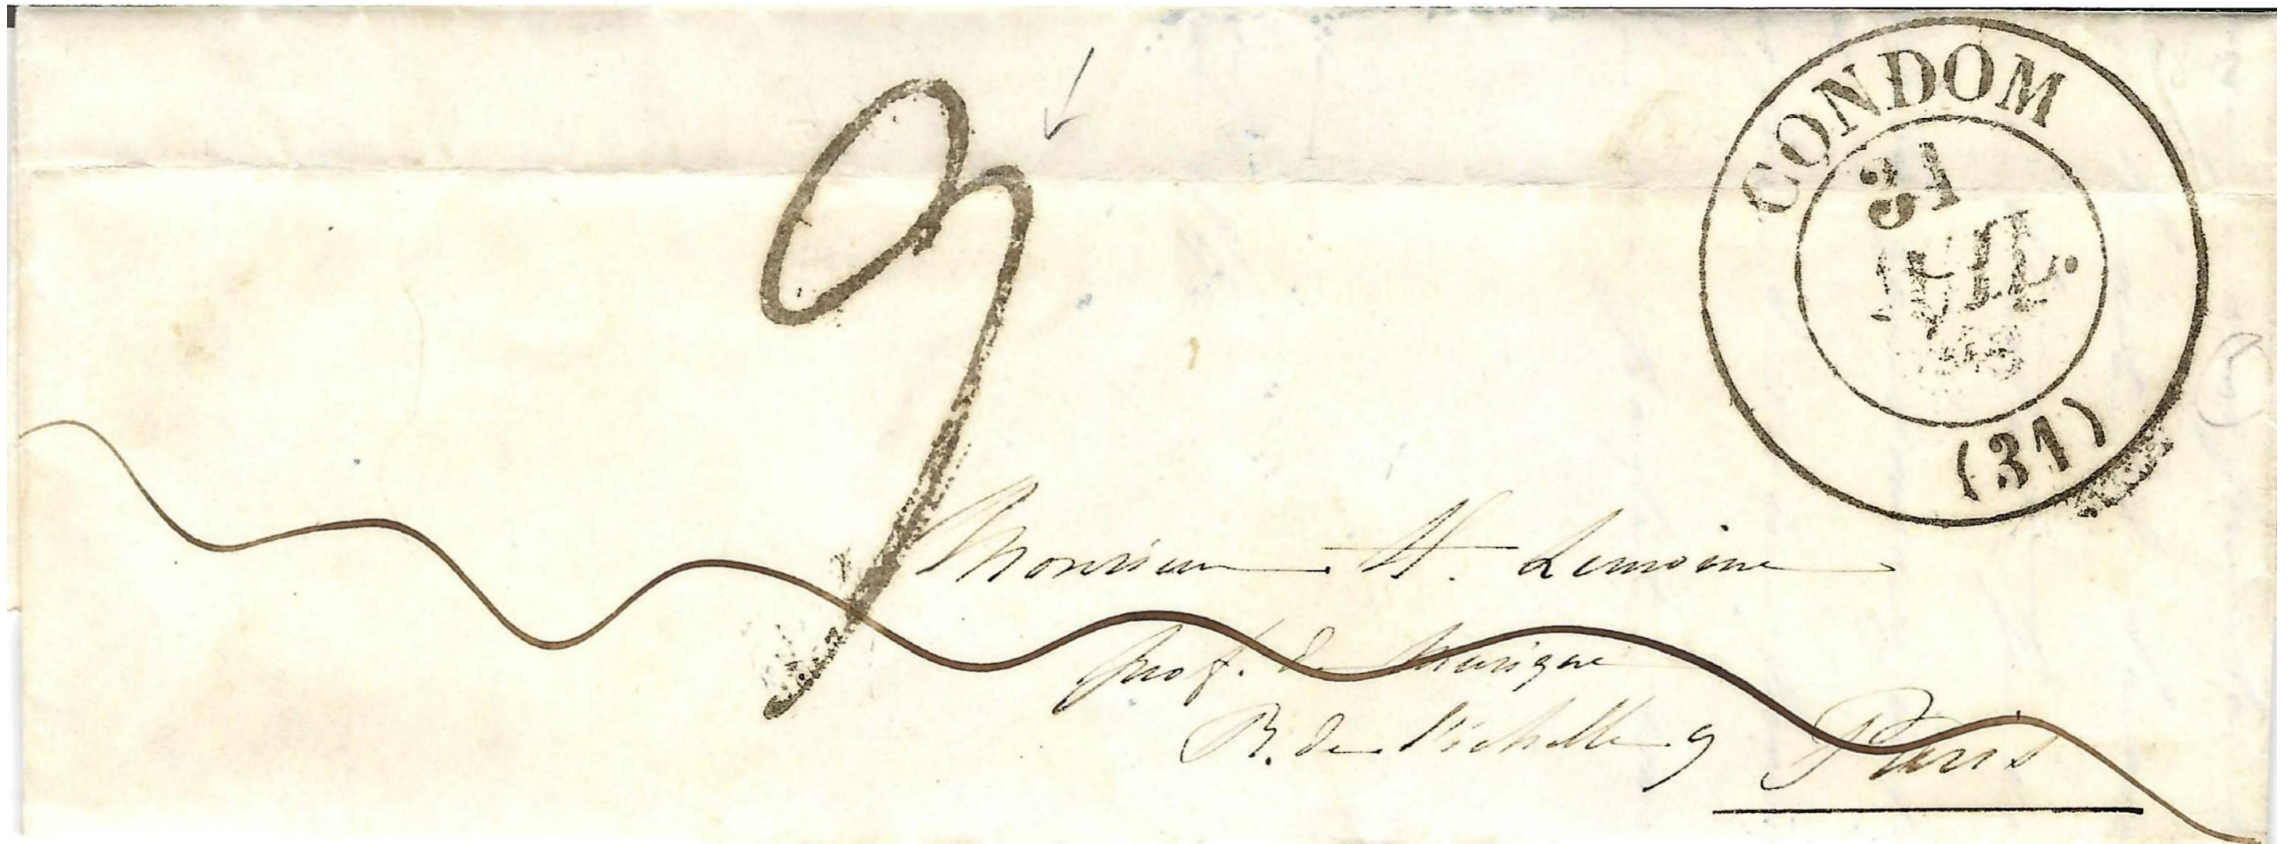 CONDOM
31
JUIL.
(31)
9
Monsieur H. Lemoine
prof. de Musique
R. de l'échelle 9 Paris